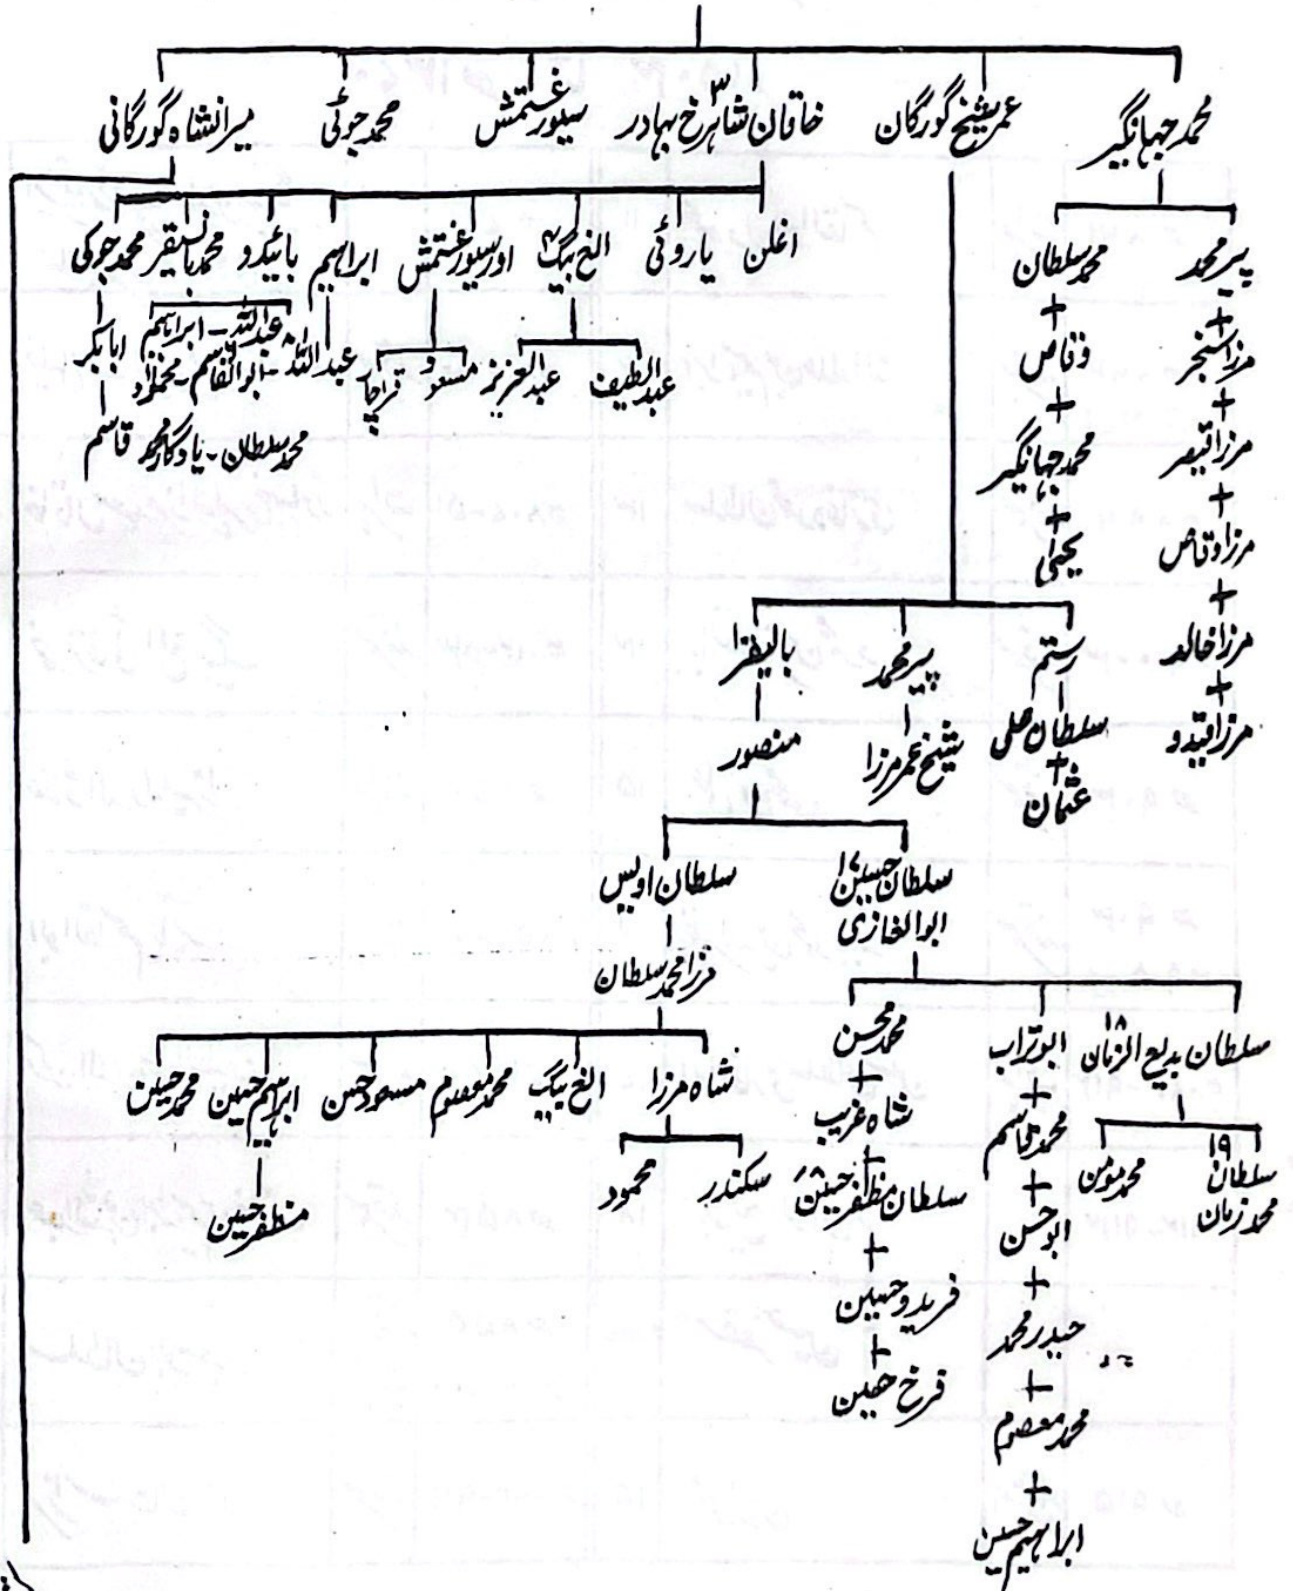 محمد جہانگیر
عمر شیخ گورگان
خاقان شاہرخ بہادر ۳
سیورغتمش
محمد جوئی
میرانشاہ گورگانی
پیر محمد
+
مرزا سنجر
+
مرزا قیصر
+
مرزا وقاص
+
مرزا خالد
+
مرزا قیدو
محمد سلطان
+
وقاص
+
محمد جہانگیر
+
یحیٰی
اغلن
یاروئی
الغ بیگ ۴
اور سیورغتمش
ابراہیم
بائیدو
محمد بائسنقر
محمد جوکی
عبدالطیف
عبدالعزیز
مسعود و قراچا
عبداللہ
عبداللہ - ابراہیم
ابوالقاسم -
محمد سلطان - یادگار محمد
ابابکر
قاسم
رستم
سلطان علی
+
عثمان
پیر محمد
شیخ عمر مرزا
بایقرا
منصور
سلطان حسین ۱۷
ابوالغازی
سلطان اویس
مرزا محمد سلطان
سلطان بدیع الزمان ۱۸
سلطان ۱۹
محمد زمان
محمد مومن
ابوتراب
+
محمد قاسم
+
ابوحسن
+
حیدر محمد
+
محمد معصوم
+
ابراہیم حسین
محمد محسن
+
شاہ غریب
+
سلطان مظفر حسین ۱۸
+
فریدو حسین
+
فرخ حسین
شاہ مرزا
الغ بیگ
محمد معصوم
مسعود حسن
ابراہیم حسین
محمد حسین
سکندر
محمود
مظفر حسین